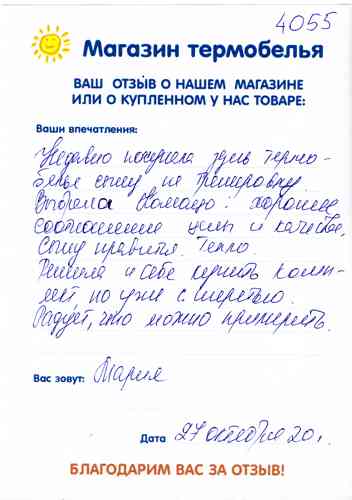 4055
Магазин термобелья
ВАШ ОТЗЫВ О НАШЕМ МАГАЗИНЕ
ИЛИ О КУПЛЕННОМ У НАС ТОВАРЕ:
Ваши впечатления:
Недавно покупала здесь термо-
белье сыну на тренировку.
Выбрала Комазо: хорошее
соотношение цены и качества.
Сыну нравится. Тепло.
Решила и себе купить комп-
лект, но уже с шерстью.
Радует, что можно примерить.
Вас зовут: Мария
Дата 27 октября 20 г.
БЛАГОДАРИМ ВАС ЗА ОТЗЫВ!